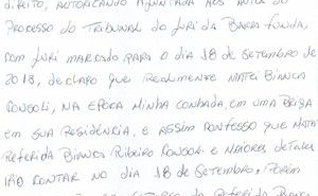 direito, autorizando a juntada nos autos do
Processo do Tribunal do Júri da Barra Funda,
com júri marcado para o dia 18 de setembro de
2018, declaro que realmente matei Bianca
Consoli, na época minha cunhada, em uma briga
em sua residência, e assim confesso que matei
referida Bianca Ribeiro Consoli e maiores detalhes
irão contar no dia 18 de setembro, porém
da referida Bianca